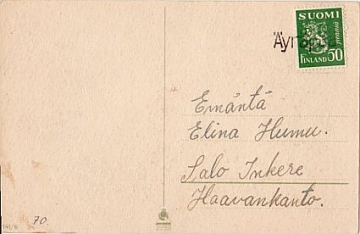 SUOMI
50 penniä
FINLAND
Äyräpää
Emäntä
Elina Humu.
Salo Inkere
Haavankanto.
70